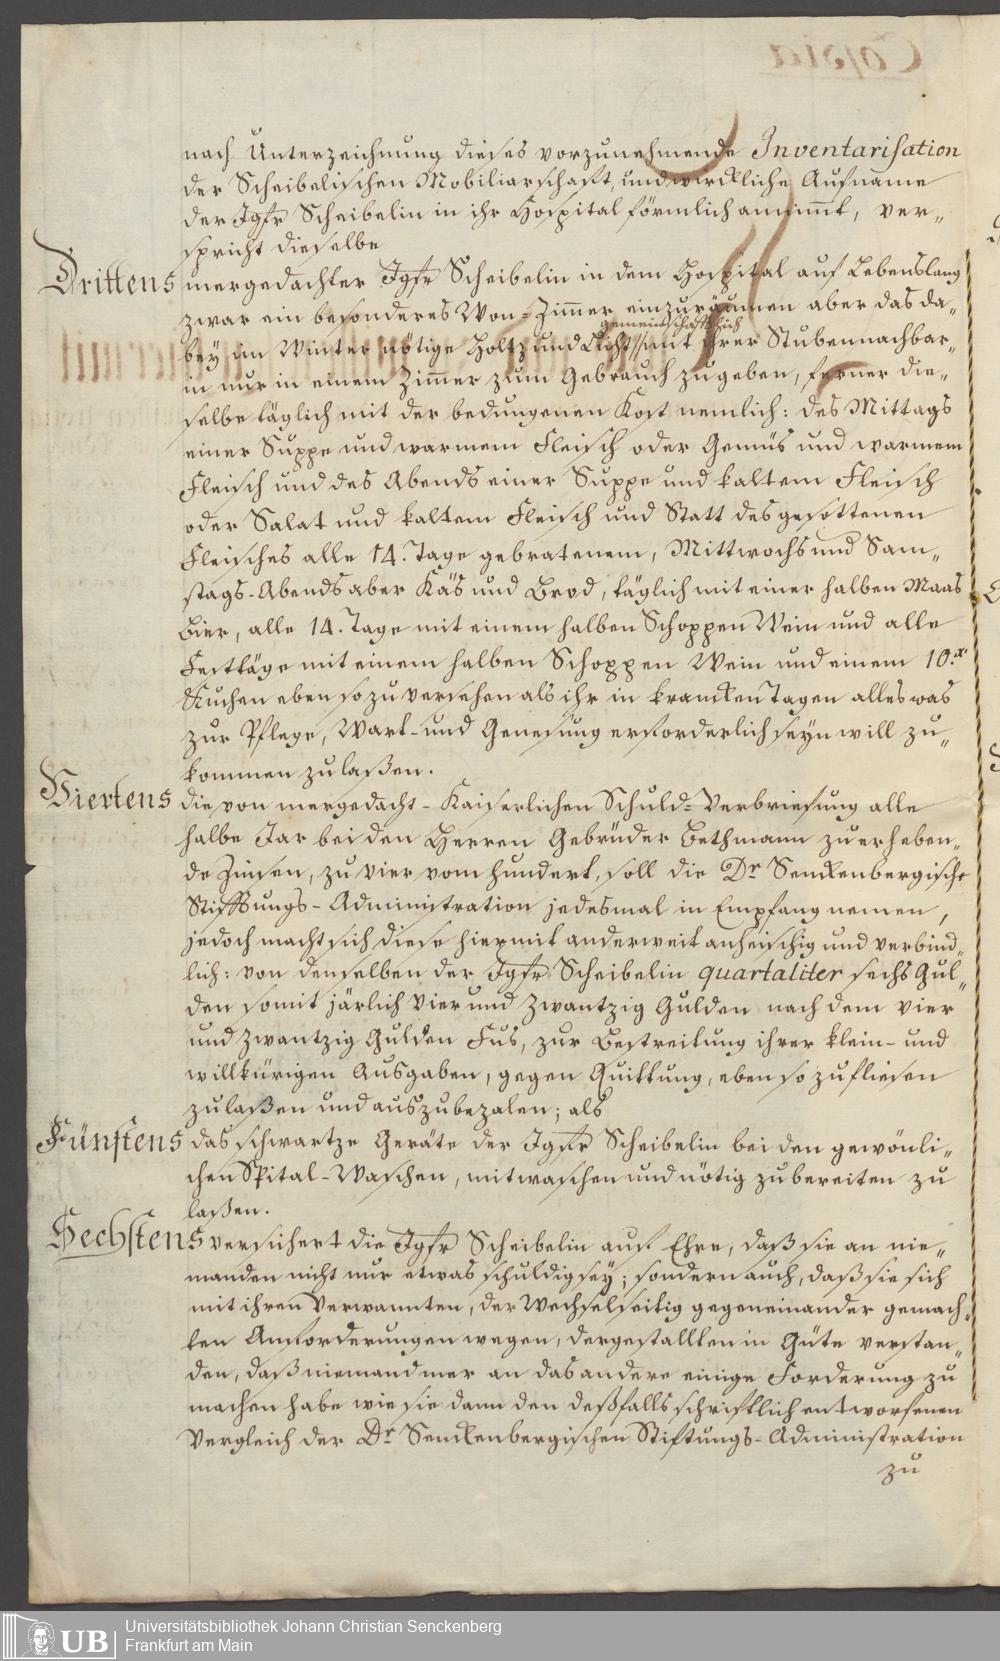 nach Unterzeichnung dieses vorzunehmende Inventarisation
der Scheibelischen Mobiliarschaft, und wirckliche Aufname
der Jgfr Scheibelin in ihr Hospital förmlich annimmt, ver„
spricht dieselbe
Drittens mergedachter Jgfr Scheibelin in dem Hospital auf Lebenslang
zwar ein besonderes Won-Zimmer einzuräumen aber das da„
gemeinschaftlich
bey im Winter nötige Holtz und Licht // mit ihrer Stubennachbar„
in nur in einem Zimmer zum Gebrauch zugeben, ferner die„
selbe täglich mit der bedungenen Kost nemlich: des Mittags
einer Suppe und warmem Fleisch oder Gemüs und warmem
Fleisch und des Abends einer Suppe und kaltem Fleisch
oder Salat und kaltem Fleisch und Statt des gesottenen
Fleisches alle 14. Tage gebratenem, Mittwochs und Sam„
stags-Abends aber Käs und Brod, täglich mit einer halben Maas
Bier, alle 14. Tage mit einem halben Schoppen Wein und alle
Festtäge mit einem halben Schoppen Wein und einem 10.xr
Kuchen eben so zu versehen als ihr in krancken Tagen alles was
zur Pflege, Wart- und Genesung erforderlich seyn will zu„
kommen zu laßen.
Viertens die von mergedacht-Kaiserlichen Schuld-Verbriefung alle
halbe Jar bei den Herren Gebrüder Bethmann zu erheben„
de Zinsen, zu vier vom hundert, soll die Dr Senckenbergische
Stifftungs-Administration jedesmal in Empfang nemen,
jedoch macht sich diese hiermit anderweit anheischig und verbind„
lich: von denselben der Jgfr Scheibelin quartaliter sechs Gul„
den somit järlich Vier und Zwantzig Gulden nach dem vier
und Zwantzig Gulden Fus, zur Bestreitung ihrer klein- und
willkürigen Ausgaben, gegen Quittung, eben so zufliesen
zu laßen und auszubezalen; als
Fünftens das schwartze Geräte der Jgfr Scheibelin bei den gewönli„
chen Spital-Waschen, mitwaschen und nötig zubereiten zu
laßen.
Sechstens versichert die Jgfr Scheibelin auf Ehre, daß sie an nie„
manden nicht nur etwas schuldig sey; sondern auch, daß sie sich
mit ihren Verwannten, der Wechselseitig gegeneinander gemach„
ten Anforderungen wegen, dergestallten in Güte verstan„
den, daß niemand mer an das andere einige Forderung zu
machen habe wie sie dann den deßfalls schriftlich entworfenen
Vergleich der Dr Senckenbergischen Stiftungs-Administration
zu
Universitätsbibliothek Johann Christian Senckenberg
UB Frankfurt am Main